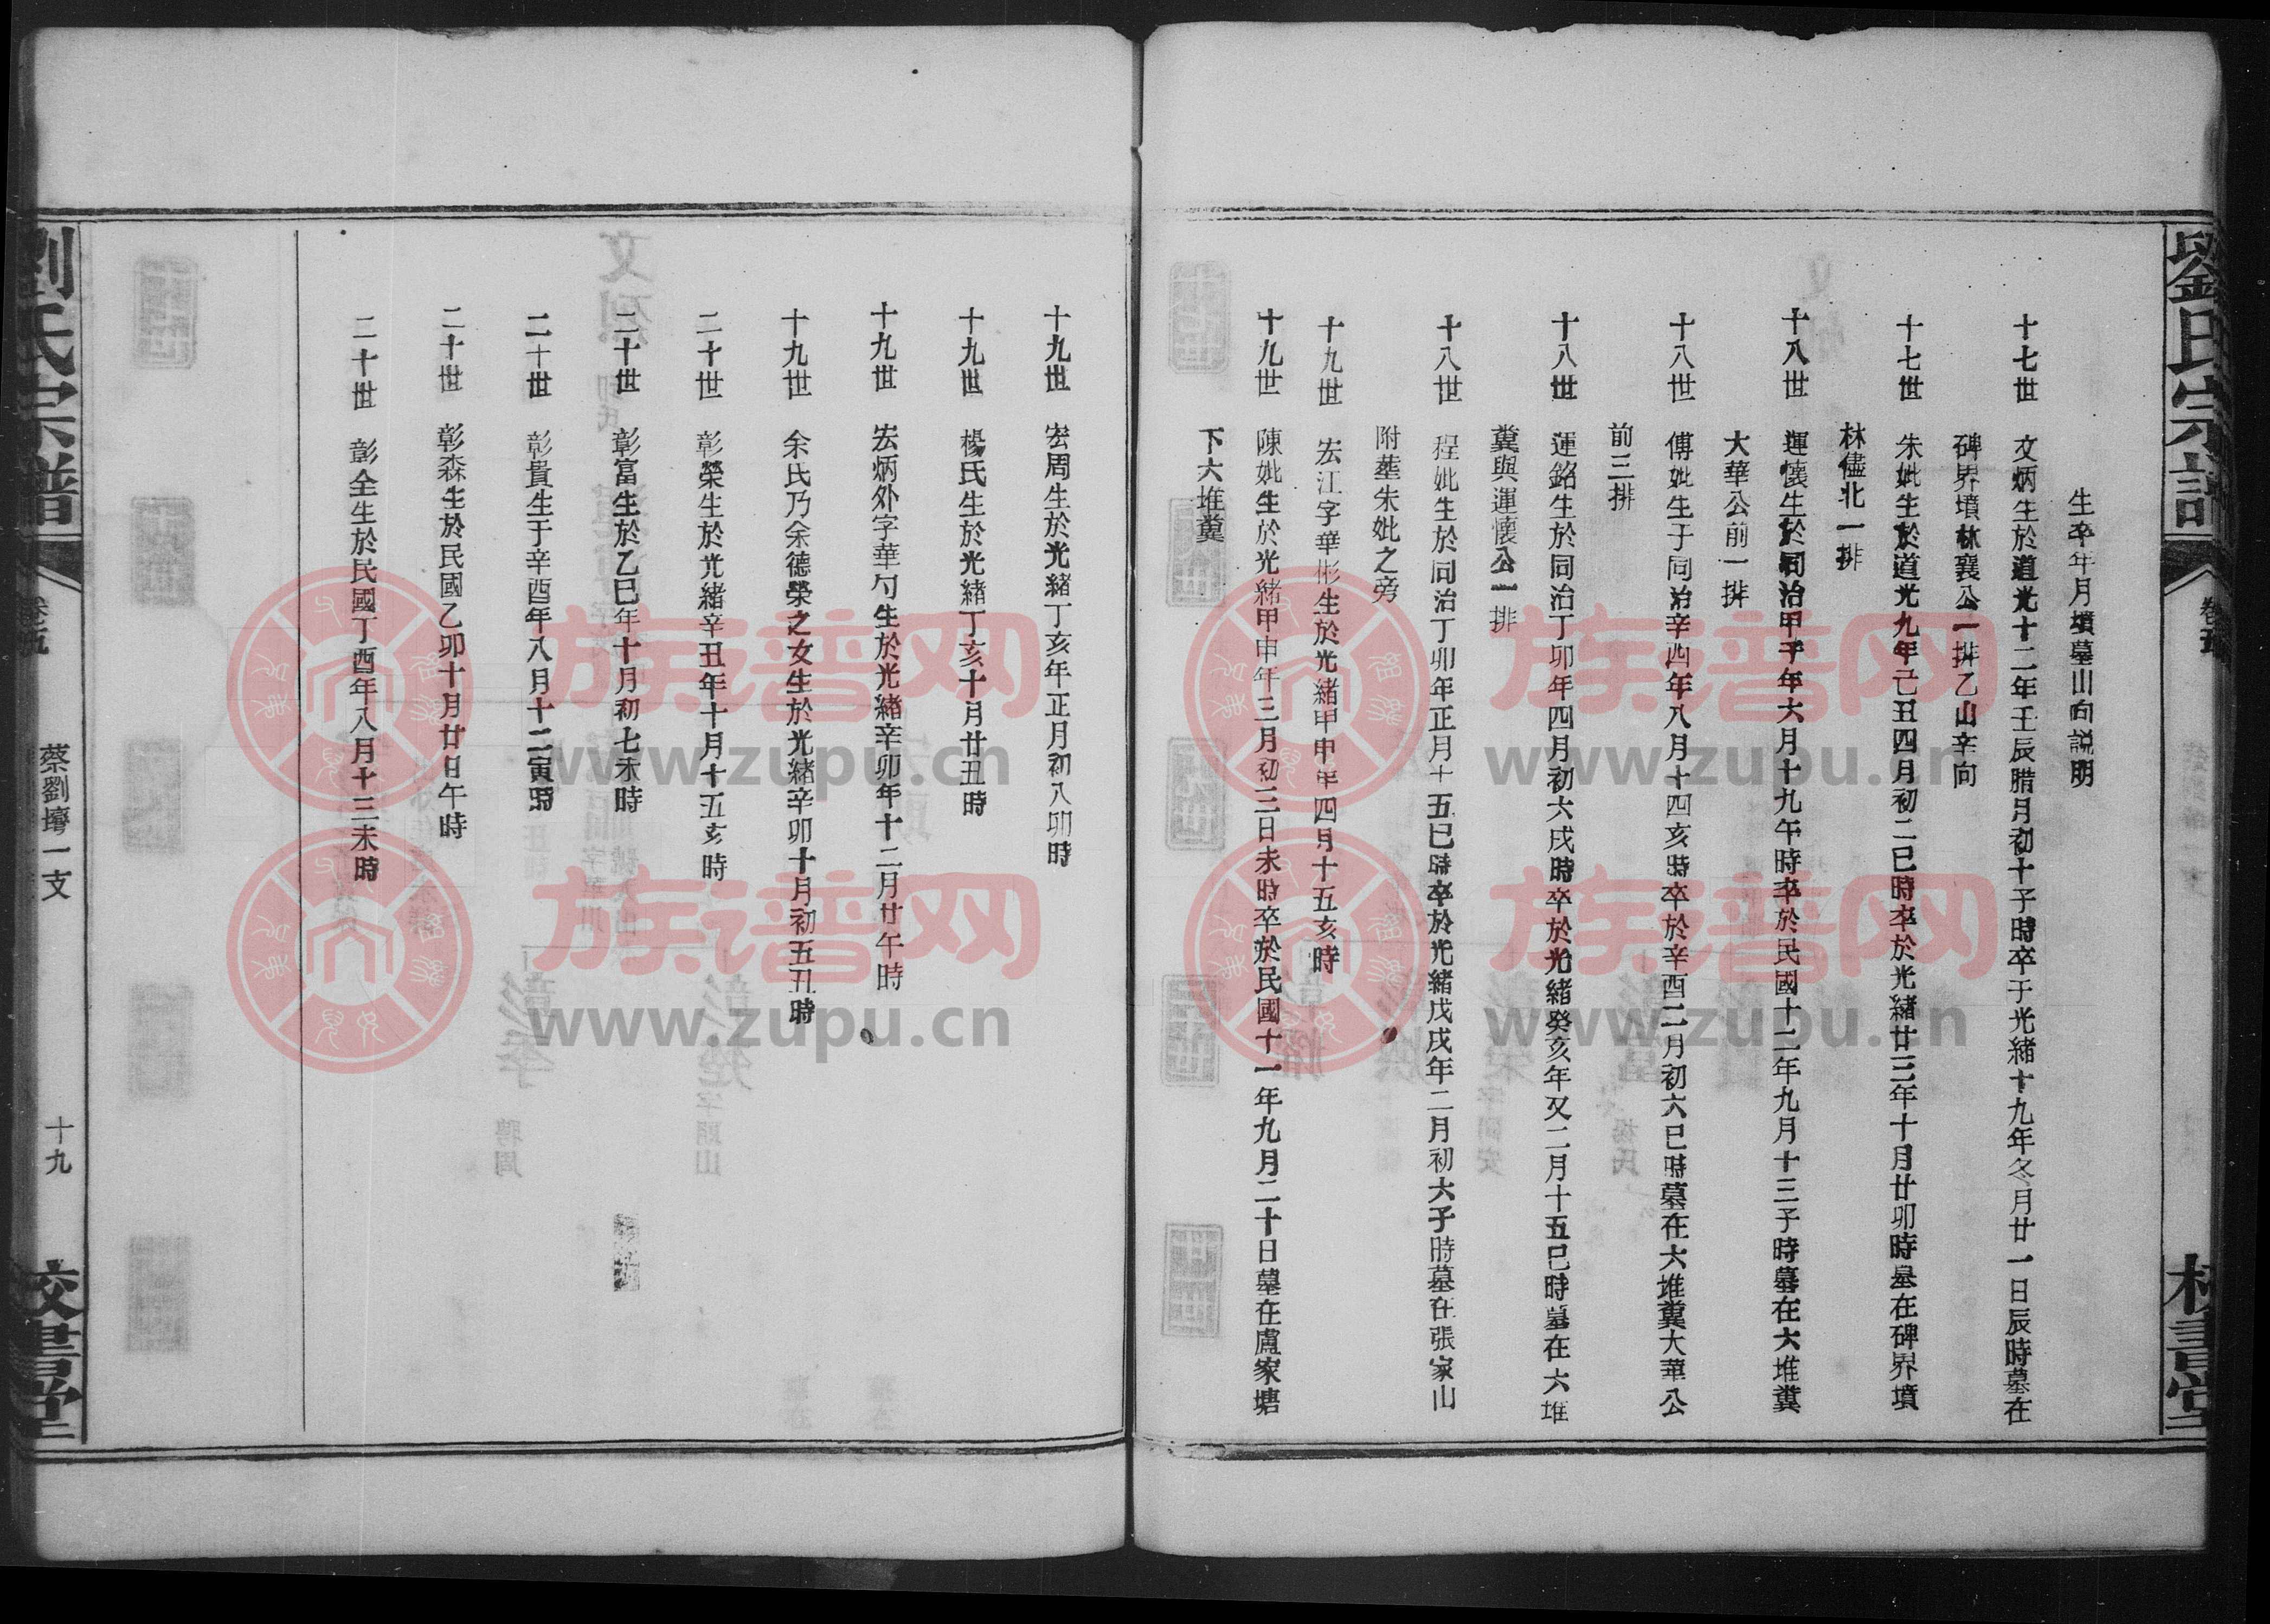 劉氏宗譜
卷五
校書堂
生卒年月墳墓山向説明
十七世 文炳生於道光十二年壬辰腊月初十子時卒于光緒十九年冬月廿一日辰時墓在
碑界墳林襄公一排乙山辛向
十七世 朱妣生於道光九年己丑四月初二巳時卒於光緒廿三年十月廿卯時墓在碑界墳
林儘北一排
十八世 運懷生於同治甲子年六月十九午時卒於民國十二年九月十三子時墓在六堆糞
大華公前一排
十八世 傅妣生于同治辛四年八月十四亥時卒於辛酉二月初六巳時墓在六堆糞大華公
前三排
十八世 運銘生於同治丁卯年四月初六戌時卒於光緒癸亥年又二月十五巳時墓在六堆
糞與運懷公一排
十八世 程妣生於同治丁卯年正月十五巳時卒於光緒戊戌年二月初六子時墓在張家山
附塟朱妣之旁
十九世 宏江字華彬生於光緒甲申年四月十五亥時
十九世 陳妣生於光緒甲申年三月初三日未時卒於民國十一年九月二十日墓在盧家塘
下六堆糞
十九世 宏周生於光緒丁亥年正月初八卯時
十九世 楊氏生於光緒丁亥十月廿丑時
十九世 宏炳外字華勺生於光緒辛卯年十二月廿午時
十九世 余氏乃余德榮之女生於光緒辛卯十月初五丑時
二十世 彰榮生於光緒辛丑年十月十五亥時
二十世 彰富生於乙巳年十月初七未時
二十世 彰貴生于辛酉年八月十二寅時
二十世 彰森生於民國乙卯十月廿日午時
二十世 彰全生於民國丁酉年八月十三未時
劉氏宗譜
卷五
蔡劉塆一支
十九
校書堂
族谱网
www.zupu.cn
族谱网
www.zupu.cn
族谱网
www.zupu.cn
族谱网
www.zupu.cn